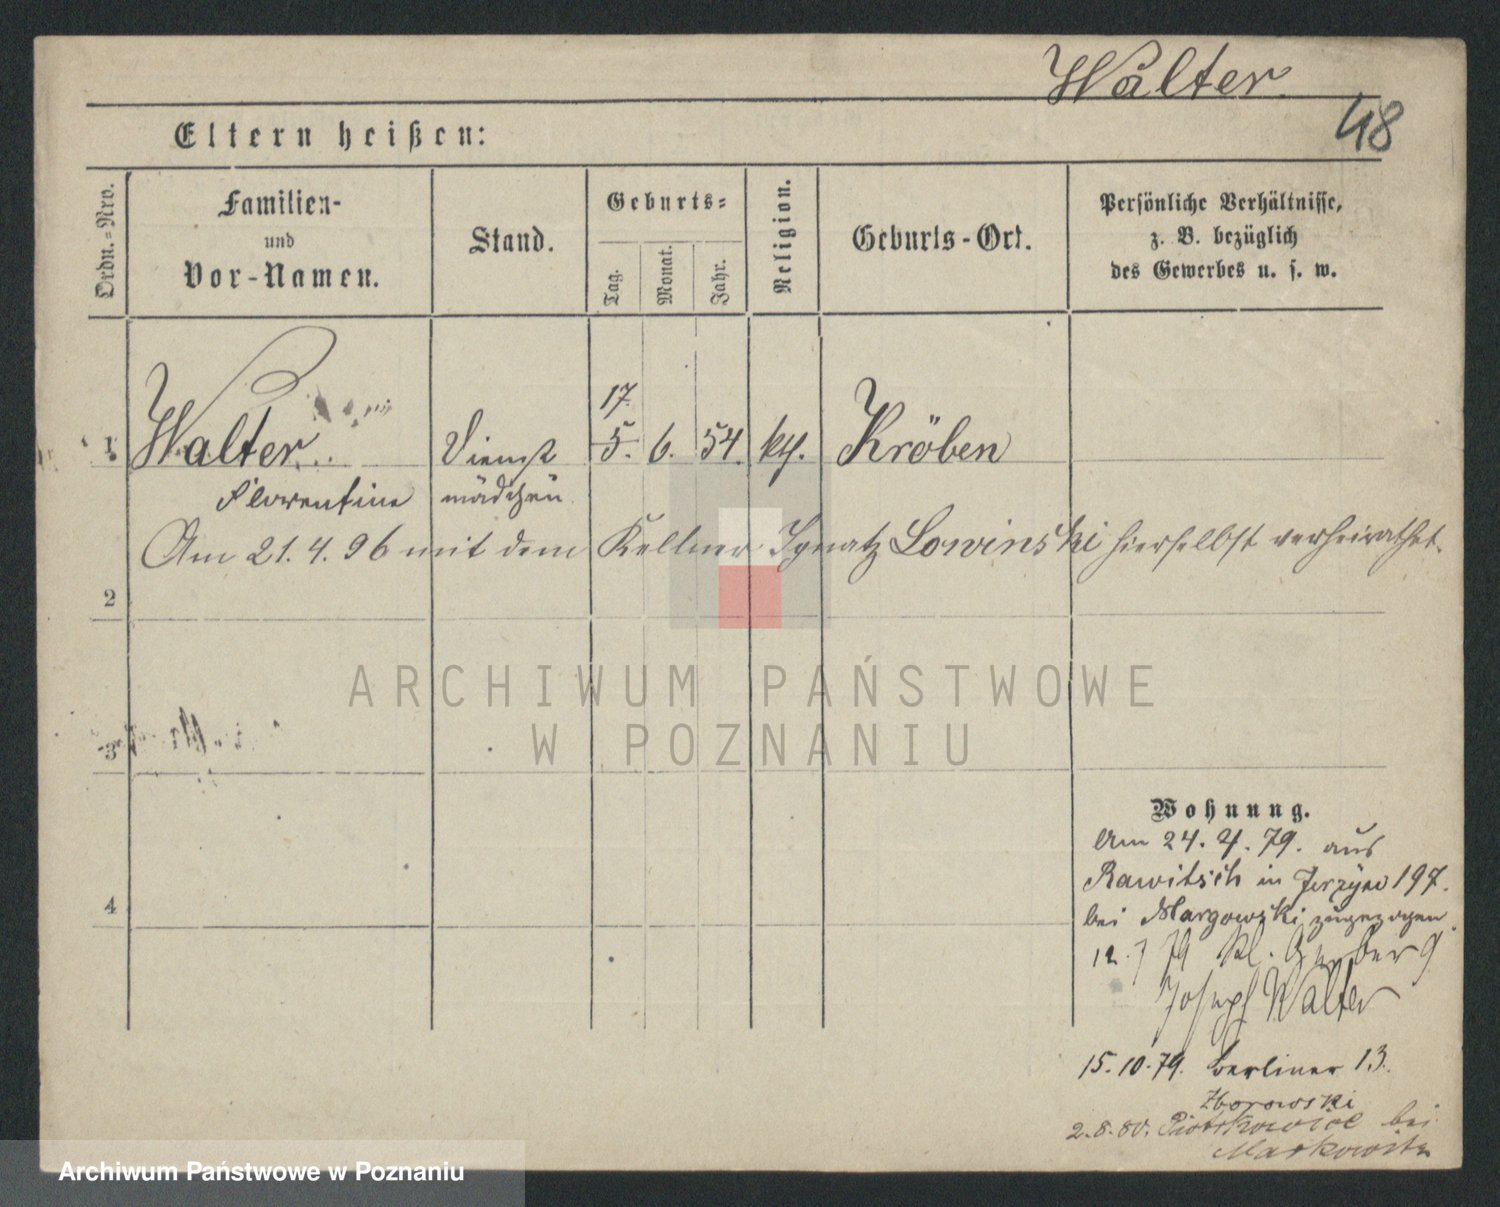 Walter
48
Eltern heißen:
Ordn.=Nro.
Familien-
und
Vor-Namen.
Stand.
Geburts=
Tag.
Monat.
Jahr.
Religion.
Geburts-Ort.
Persönliche Verhältnisse,
z. B. bezüglich
des Gewerbes u. s. w.
17.
1 Walter Dienst 5. 6. 54. kth. Kröben
Florentine mädchen
Am 21.4.96 mit dem Kellner Ignatz Lowinski hierselbst verheirathet.
2
3
4
ARCHIWUM PAŃSTWOWE
W POZNANIU
Wohnung.
Am 24. 4. 79. aus
Rawitsch in Jerzyce 197.
bei Margowski zugezogen
12. 7 79 Kl. Gerberg
Joseph Walter
15.10.79. Berliner 13.
Zborowski
2.8.80. bei
Markowitz
Archiwum Państwowe w Poznaniu